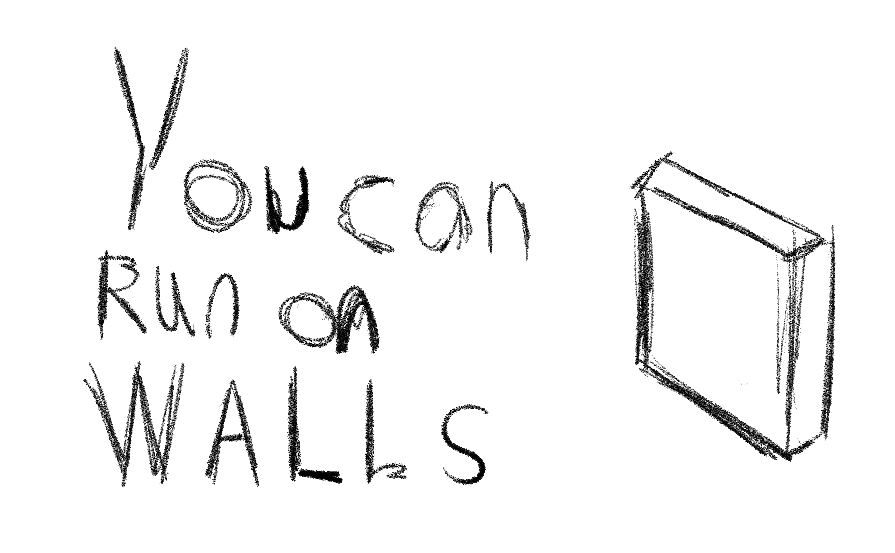 You can
Run on
WALLS